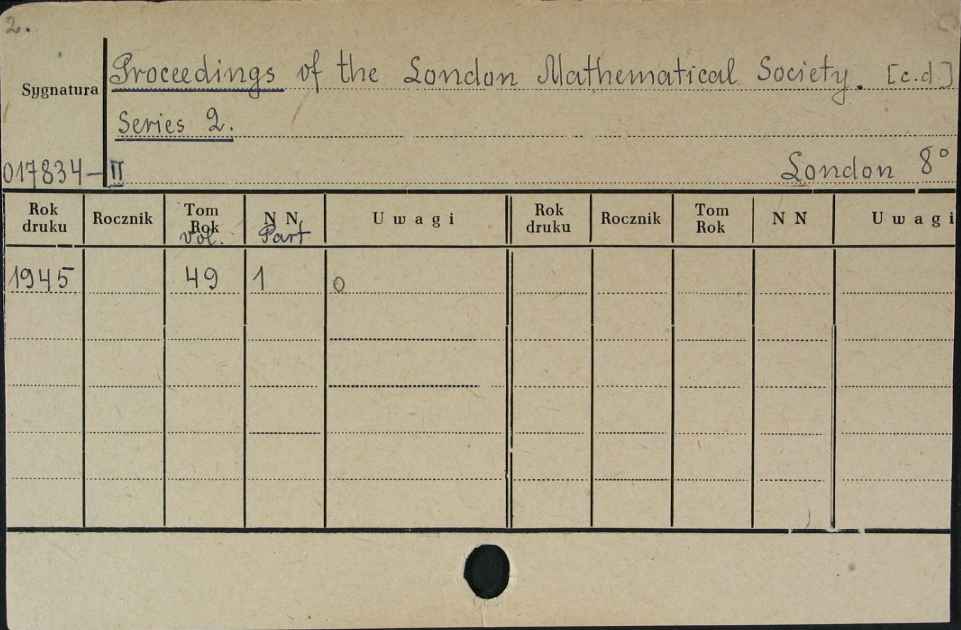 2.
Proceedings of the London Mathematical Society. [c.d.]
Sygnatura
Series 2.
017834-II London 8°
Rok druku Rocznik Tom Rok Vol. N N Part Uwagi Rok druku Rocznik Tom Rok N N Uwagi
1945 49 1 o